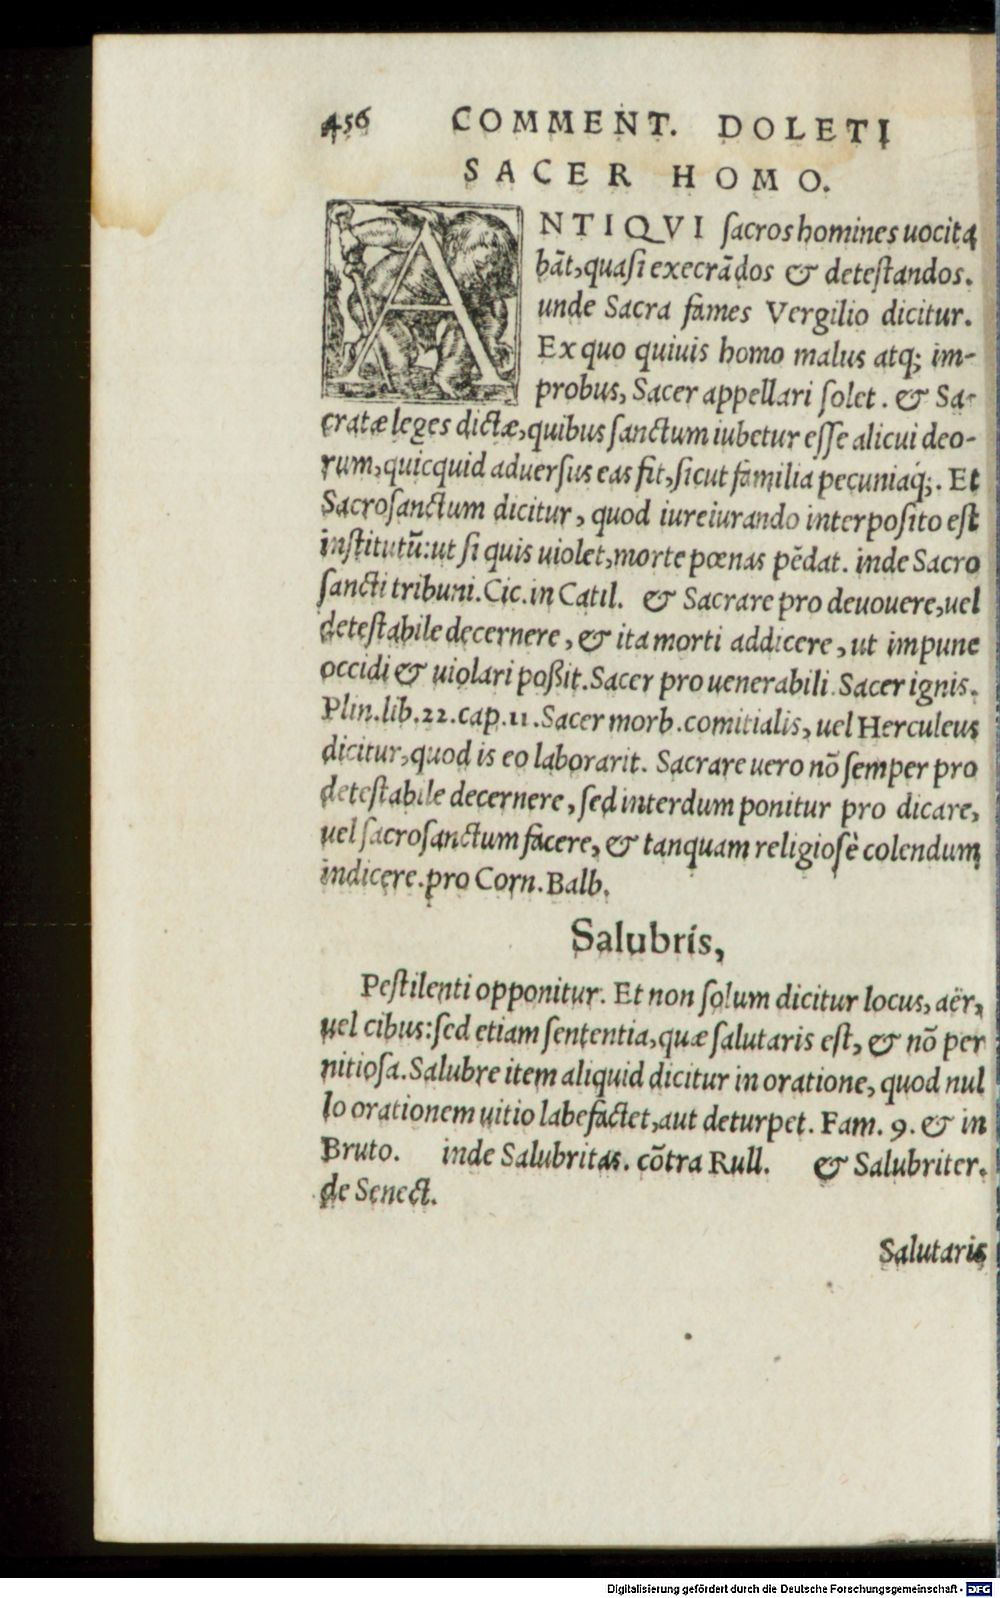 456 COMMENT. DOLETI
SACER HOMO.
ANTIQVI ſacros homines uocita
bãt, quaſi execrãdos & deteſtandos.
unde Sacra fames Vergilio dicitur.
Ex quo quiuis homo malus atq; im-
probus, Sacer appellari ſolet. & Sa-
cratæ leges dictæ, quibus ſanctum iubetur eſſe alicui deo-
rum, quicquid aduerſus eas fit, ſicut familia pecuniaq́;. Et
Sacroſanctum dicitur, quod iureiurando interpoſito eſt
inſtitutũ: ut ſi quis uiolet, morte pœnas pẽdat. inde Sacro
ſancti tribuni. Cic. in Catil. & Sacrare pro deuouere, uel
deteſtabile decernere, & ita morti addicere, ut impune
occidi & uiolari poßit. Sacer pro uenerabili. Sacer ignis.
Plin. lib. 22. cap. 11. Sacer morb. comitialis, uel Herculeus
dicitur, quod is eo laborarit. Sacrare uero nõ ſemper pro
deteſtabile decernere, ſed interdum ponitur pro dicare,
uel ſacroſanctum facere, & tanquam religioſè colendum
indicere. pro Corn. Balb.
Salubris,
Peſtilenti opponitur. Et non ſolum dicitur locus, aër,
uel cibus: ſed etiam ſententia, quæ ſalutaris eſt, & nõ per
nitioſa. Salubre item aliquid dicitur in oratione, quod nul
lo orationem uitio labefactet, aut deturpet. Fam. 9. & in
Bruto. inde Salubritas. cõtra Rull. & Salubriter.
de Senect.
Salutaris
Digitalisierung gefördert durch die Deutsche Forschungsgemeinschaft - DFG